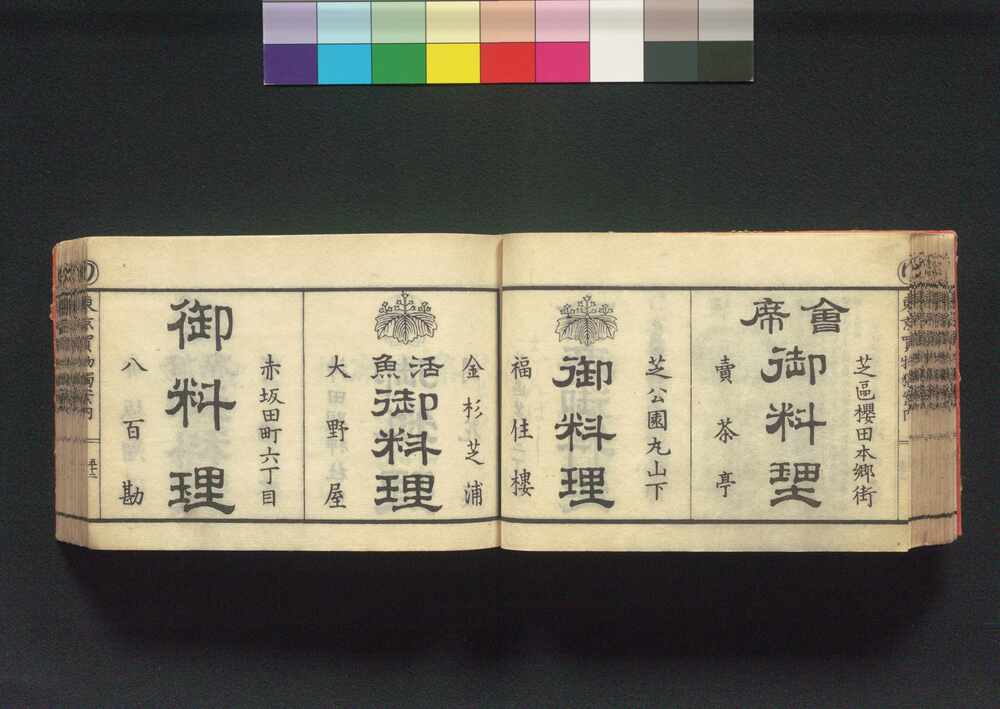 芝區櫻田本郷街
會席
御料理
賣茶亭
芝公園丸山下
御料理
福住樓
金杉芝浦
活魚
御料理
大野屋
赤坂田町六丁目
御料理
八百勘